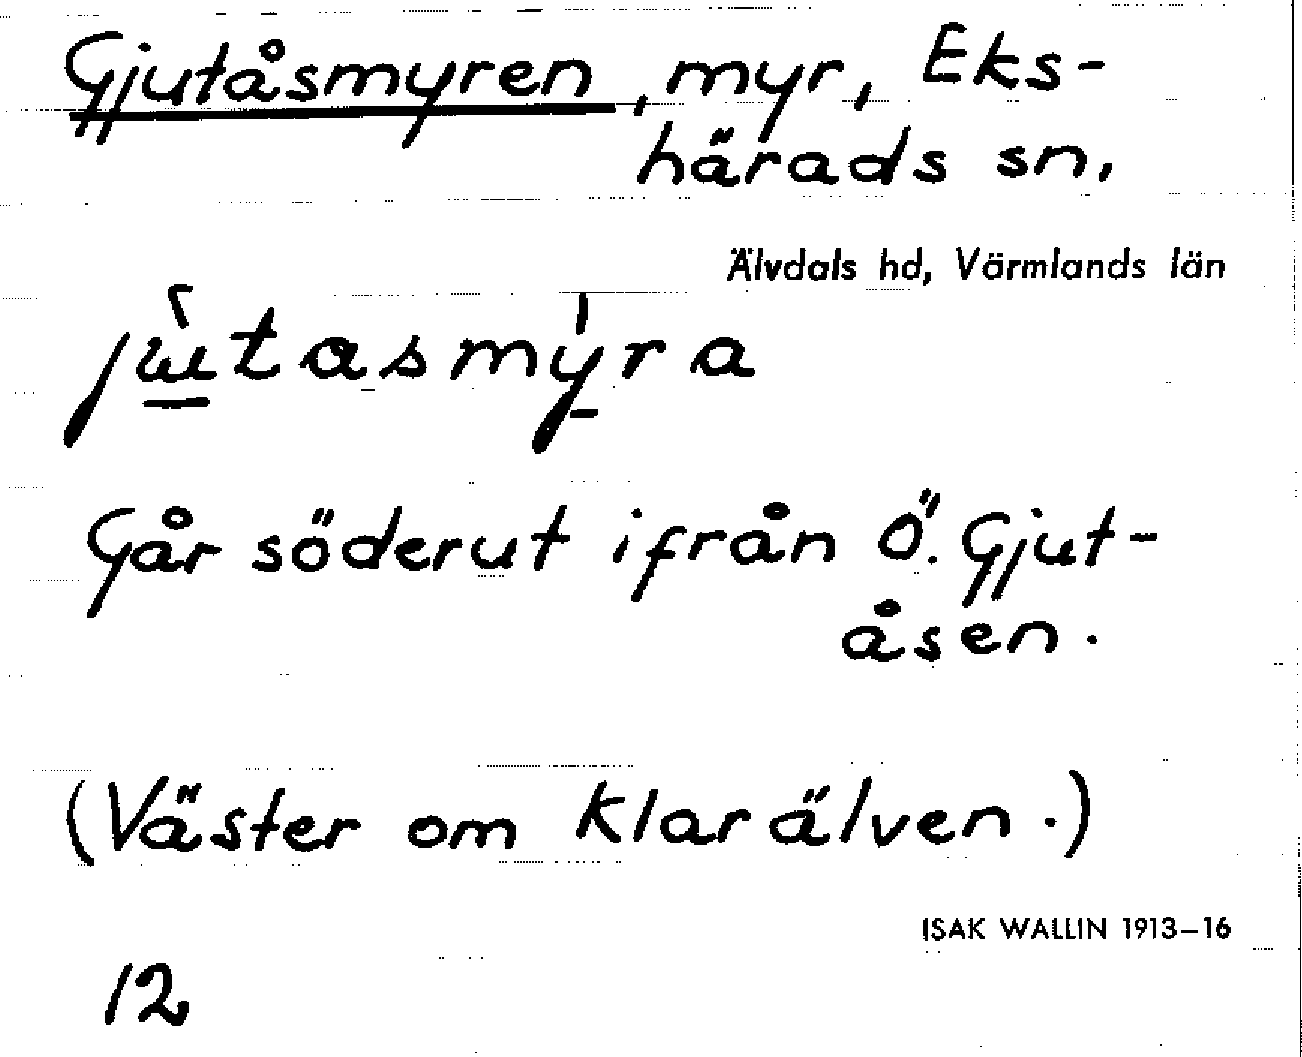 Gjutåsmyren, myr, Eks-
härads sn,
Älvdals hd, Värmlands län
jɯ̀tasmýra
Går söderut ifrån Ö. Gjut-
åsen.
(Väster om Klarälven.)
ISAK WALLIN 1913–16
12